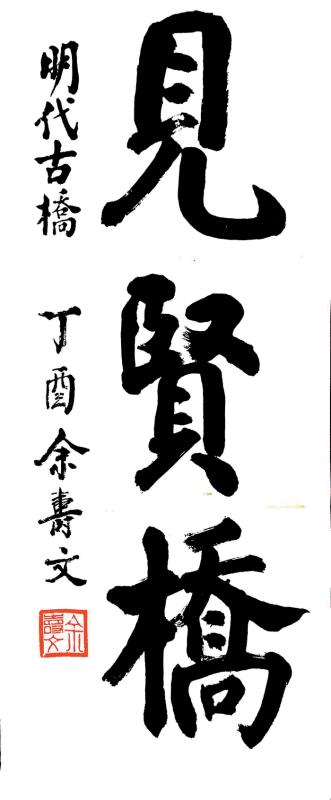 見賢橋
明代古橋 丁酉 余壽文
余壽文